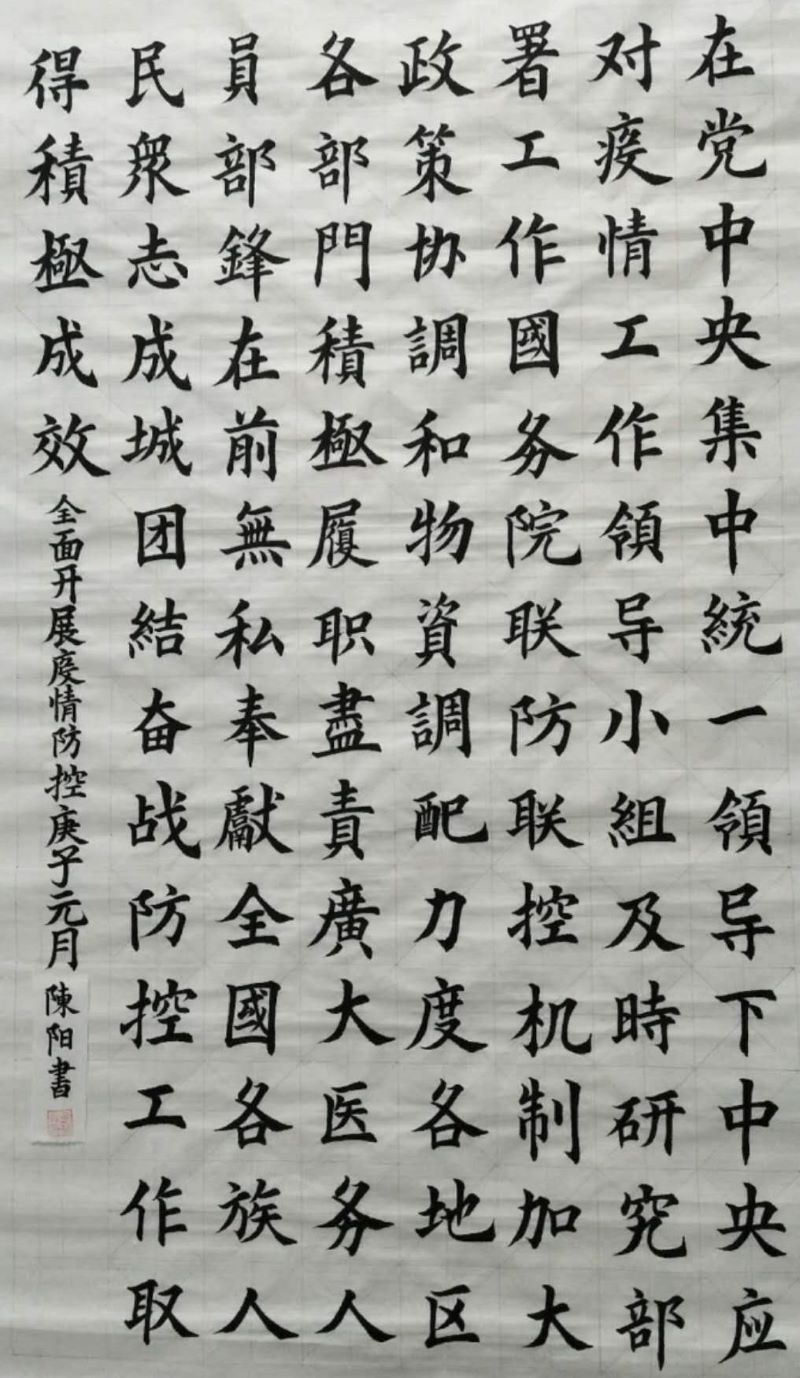 在党中央集中統一領导下中央应
对疫情工作領导小組及時研究部
署工作國务院联防联控机制加大
政策协調和物資調配力度各地区
各部門積極履职盡責廣大医务人
員部鋒在前無私奉獻全國各族人
民衆志成城团結奋战防控工作取
得積極成效
全面开展疫情防控庚子元月
陳阳書